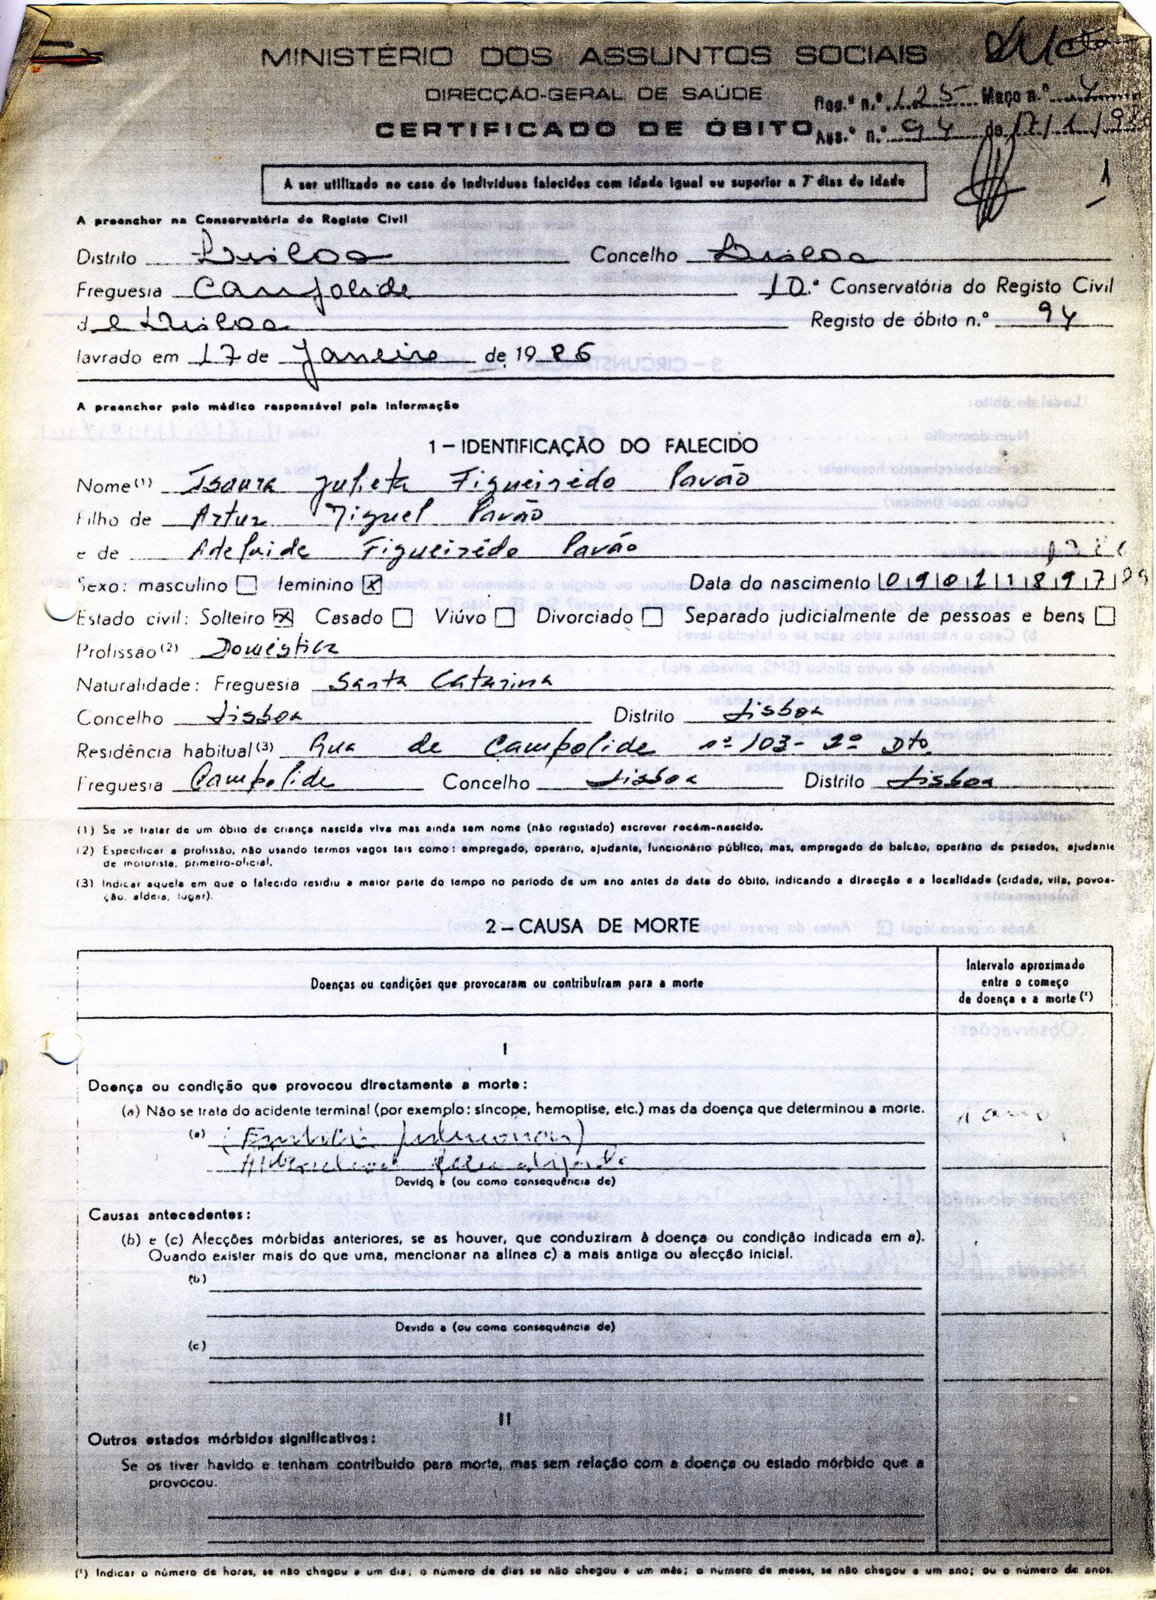 MINISTÉRIO DOS ASSUNTOS SOCIAIS
DIRECÇÃO-GERAL DE SAÚDE
Reg.º n.º 125 Maço n.º 4
CERTIFICADO DE ÓBITO
Ass.º n.º 94 de 17/1/986
1
A ser utilizado no caso de indivíduos falecidos com idade igual ou superior a 7 dias de idade
A preencher na Conservatória do Registo Civil
Distrito Lisboa Concelho Lisboa
Freguesia Campolide 10.ª Conservatória do Registo Civil
de Lisboa Registo de óbito n.º 94
lavrado em 17 de Janeiro de 1986
A preencher pelo médico responsável pela informação
1 – IDENTIFICAÇÃO DO FALECIDO
Nome (1) Isaura Julieta Figueirêdo Pavão
Filho de Artur Miguel Pavão
e de Adelaide Figueirêdo Pavão
Sexo: masculino feminino x Data do nascimento 09011897
Estado civil: Solteiro x Casado Viúvo Divorciado Separado judicialmente de pessoas e bens
Profissão (2) Doméstica
Naturalidade: Freguesia Santa Catarina
Concelho Lisboa Distrito Lisboa
Residência habitual (3) Rua de Campolide nº 103 - 2º Dto
Freguesia Campolide Concelho Lisboa Distrito Lisboa
(1) Se se tratar de um óbito de criança nascida viva mas ainda sem nome (não registado) escrever recém-nascido.
(2) Especificar a profissão, não usando termos vagos tais como: empregado, operário, ajudante, funcionário público, mas, empregado de balcão, operário de pesados, ajudante
de motorista, primeiro-oficial.
(3) Indicar aquela em que o falecido residiu a maior parte do tempo no período de um ano antes da data do óbito, indicando a direcção e a localidade (cidade, vila, povoa-
ção, aldeia, lugar).
2 – CAUSA DE MORTE
Doenças ou condições que provocaram ou contribuíram para a morte
Intervalo aproximado
entre o começo
da doença e a morte (¹)
I
Doença ou condição que provocou directamente a morte:
(a) Não se trata do acidente terminal (por exemplo: síncope, hemoptise, etc.) mas da doença que determinou a morte.
(a) (Embolia pulmonar)
Devido a (ou como consequência de)
Causas antecedentes:
(b) e (c) Afecções mórbidas anteriores, se as houver, que conduziram à doença ou condição indicada em a).
Quando exister mais do que uma, mencionar na alínea c) a mais antiga ou afecção inicial.
(b)
Devido a (ou como consequência de)
(c)
II
Outros estados mórbidos significativos:
Se os tiver havido e tenham contribuído para morte, mas sem relação com a doença ou estado mórbido que a
provocou.
(¹) Indicar o número de horas, se não chegou a um dia; o número de dias se não chegou a um mês; o número de meses, se não chegou a um ano; ou o número de anos.